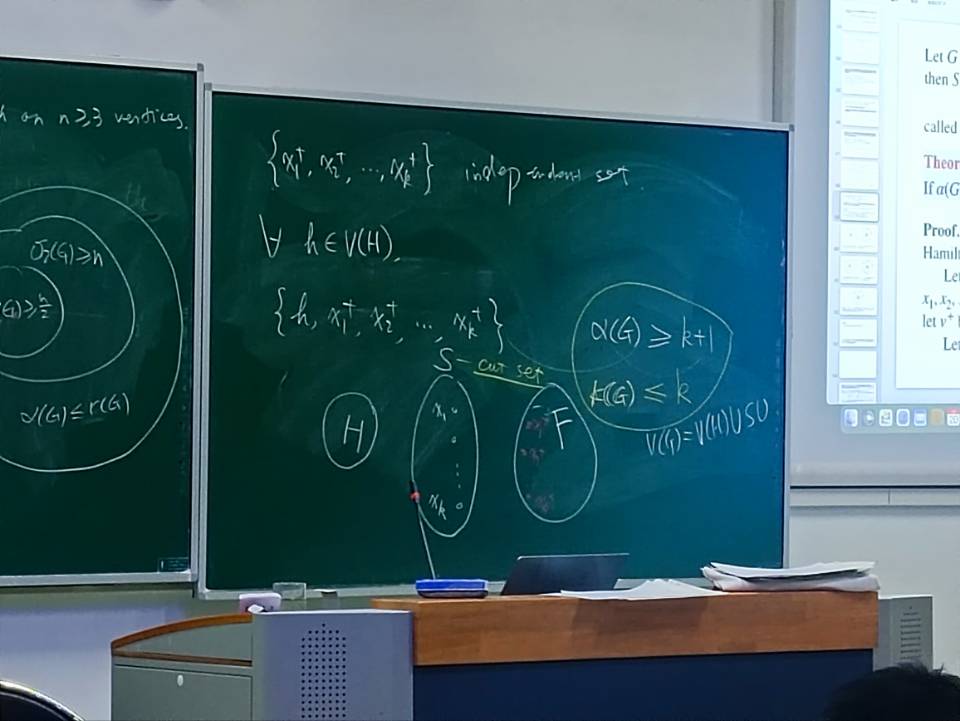 on n≥3 vertices.
σ₂(G)≥n
≥n/2
α(G)≤κ(G)
{x₁⁺, x₂⁺, ..., xₖ⁺} independent set.
∀ h∈V(H),
{h, x₁⁺, x₂⁺, ..., xₖ⁺}
S - cut set
H
x₁
⋮
xₖ
F
α(G) ≥ k+1
κ(G) ≤ k
V(G)=V(H)∪S∪
Let G
then S
called
Theor
If α(G
Proof.
Hamilt
Let
x₁, x₂,
let v⁺
Let